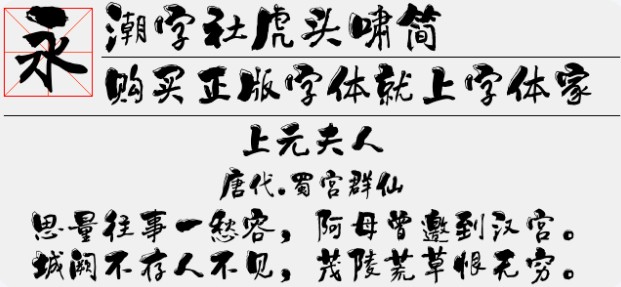 永
潮字社虎头啸简
购买正版字体就上字体家
上元夫人
唐代.蜀宫群仙
思量往事一愁容，阿母曾邀到汉宫。
城阙不存人不见，茂陵荒草恨无穷。